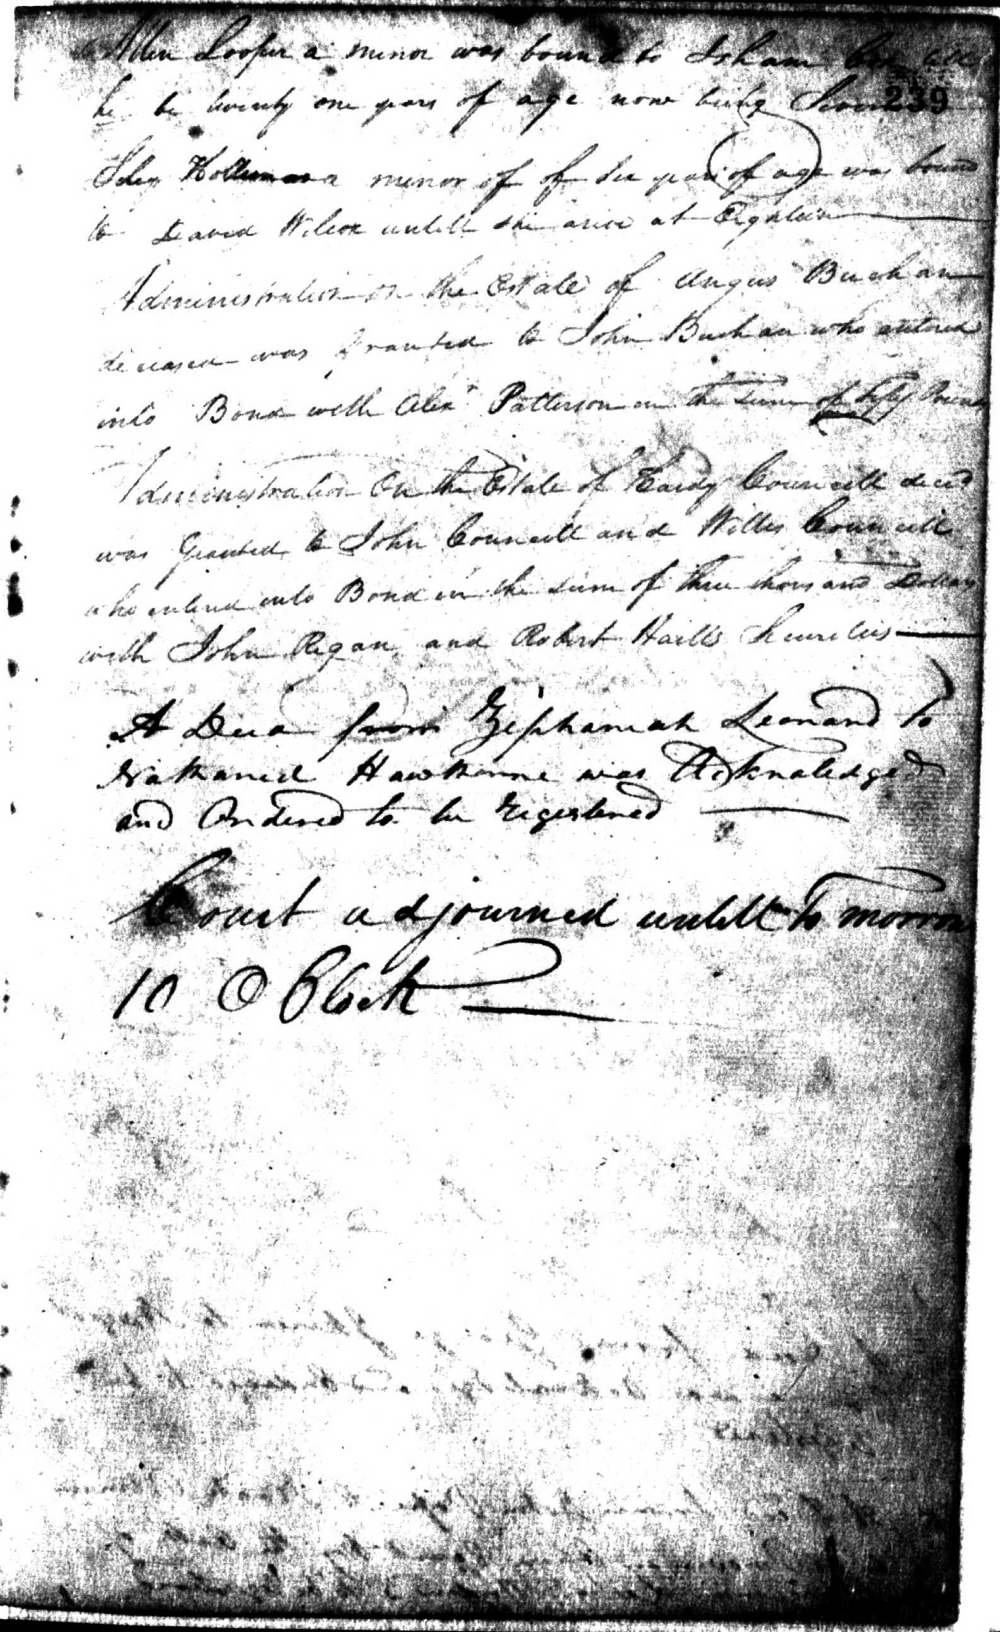 Allen Looper a minor was bound to Isham till
239
he be twenty one years of age now being
Holliman a minor of of six years of age was bound
to David Wilcox untill she arive at Eighteen
Administration on the Estate of Angus Buchan
deceased was Granted to John Buchan who entered
into Bond with Alexr Patterson in the sum of fifty Pounds
Administration On the Estate of Hardy Councill decd
was Granted to John Councill and Willis Councill
who enterd into Bond in the sum of three thousand Dollars
with John Regan and Robert Haills Securities
A Deed from Zephaniah Leonard to
Nathaniel Hawthorne was Acknoledged
and Ordered to be Registered
Court adjourned untill to morrow
10 O Clock